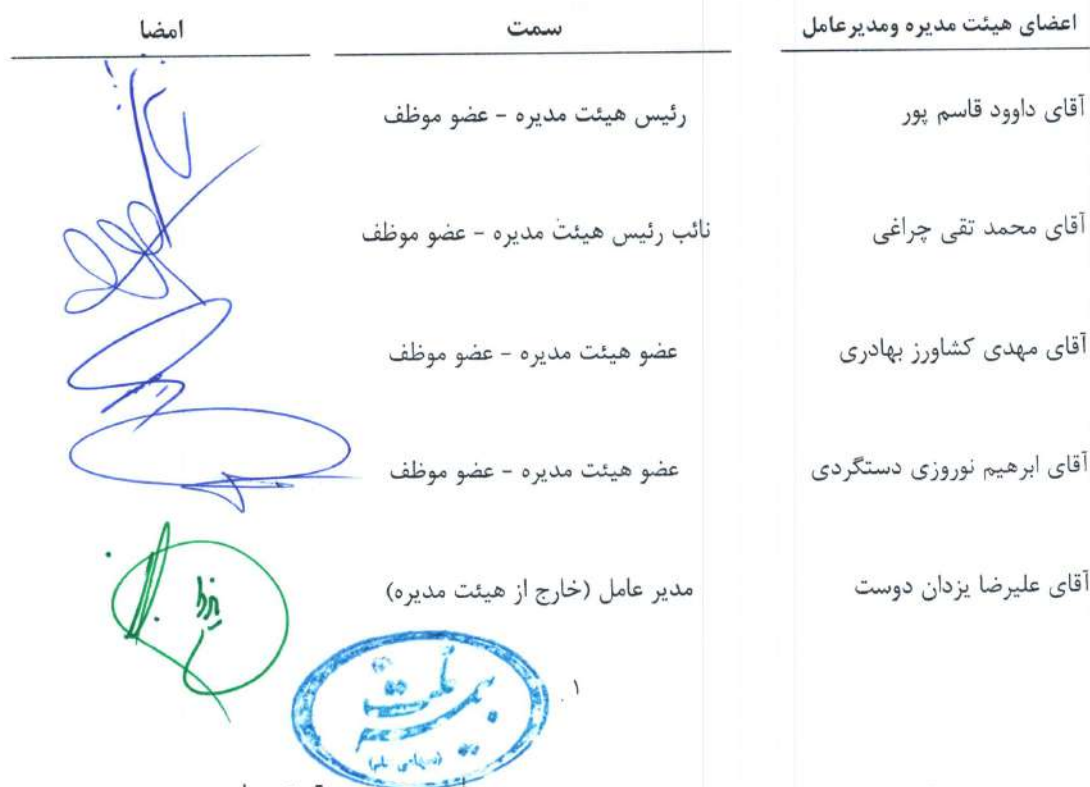 اعضای هیئت مدیره ومدیرعامل سمت امضا
آقای داوود قاسم پور رئیس هیئت مدیره - عضو موظف
آقای محمد تقی چراغی نائب رئیس هیئت مدیره - عضو موظف
آقای مهدی کشاورز بهادری عضو هیئت مدیره - عضو موظف
آقای ابرهیم نوروزی دستگردی عضو هیئت مدیره - عضو موظف
آقای علیرضا یزدان دوست مدیر عامل (خارج از هیئت مدیره)
۱
بیمه ملت
(سهامی عام)